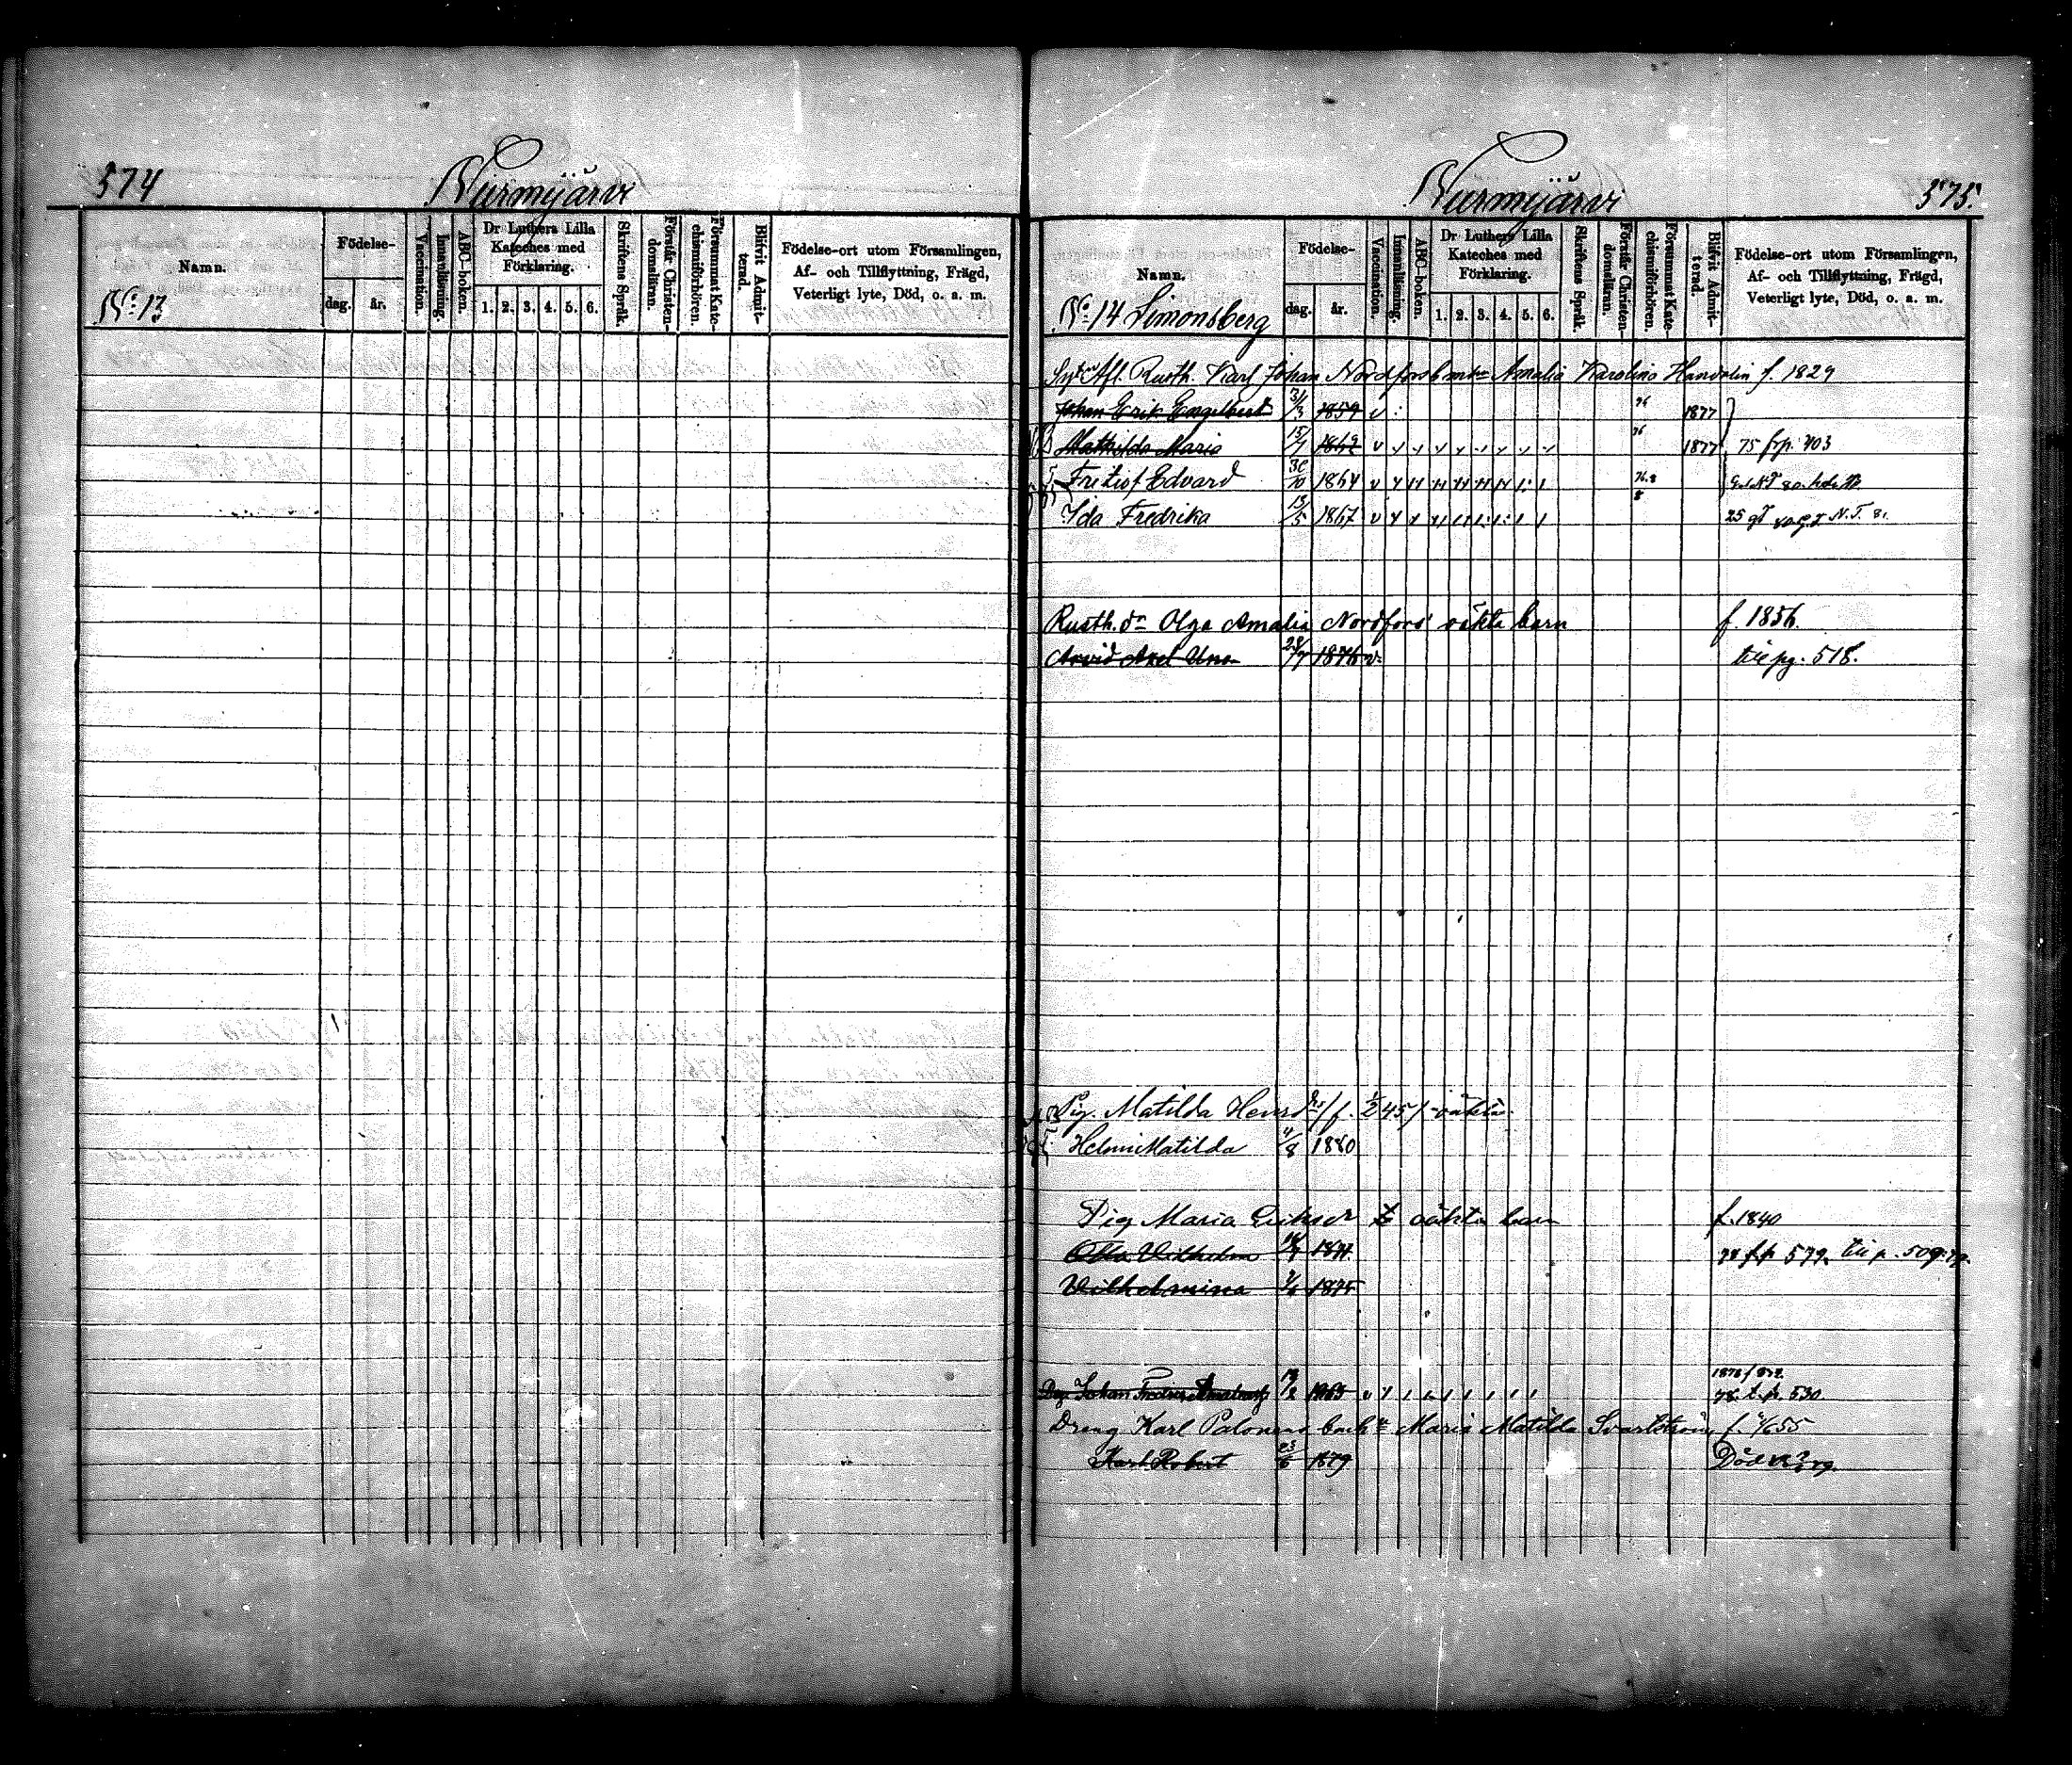 574
Nurmijärvi
Namn.
Födelse-
dag.
år.
Vaccination.
Innanläsning.
ABC-boken.
Dr Luthers Lilla
Kateches med
Förklaring.
1. 2. 3. 4. 5. 6.
Skriftens Språk.
Förstår Christen-
domsläran.
Försummat Kate-
chismiförhören.
Blifvit Admit-
terad.
Födelse-ort utom Församlingen,
Af- och Tillflyttning, Frägd,
Veterligt lyte, Död, o. a. m.
No. 13
Nurmijärvi
575.
Namn.
Födelse-
dag.
år.
Vaccination.
Innanläsning.
ABC-boken.
Dr Luthers Lilla
Kateches med
Förklaring.
1. 2. 3. 4. 5. 6.
Skriftens Språk.
Förstår Christen-
domsläran.
Försummat Kate-
chismiförhören.
Blifvit Admit-
terad.
Födelse-ort utom Församlingen,
Af- och Tillflyttning, Frägd,
Veterligt lyte, Död, o. a. m.
No. 14 Simonsberg
Afl. Rusth. Karl Johan Nordfors Amalia Karolina f. 1829
Johan Erik Engelbert 31/3 1859 v 76 1877
Mathilda Maria 15/7 1862 v 76 1877 75 frp. 403
Fritiof Edvard 30/10 1864 v 76.8
Ida Fredrika 13/5 1867 v 8 N.T. 81.
Rusth. dr Olga Amalia Nordfors oäkta barn f. 1856.
Arvid Axel 28/7 1876 v. till pg. 518.
Pig. Matilda Henrsdr / f. 1/2 45 / oäkta
Helmi Matilda 11/8 1880
Pig Maria Eriksdr oäkta barn f. 1840
Otto Vilhelm 1871 78 fr p 579. till p. 509. 79.
Vilhelmina 1875
Drg. Johan Fredrik 19/2 1865 v 78 t. p. 530
Dreng Karl Palonens Maria Matilda Svartström f. 55
Karl Robert 23/6 1879 Död